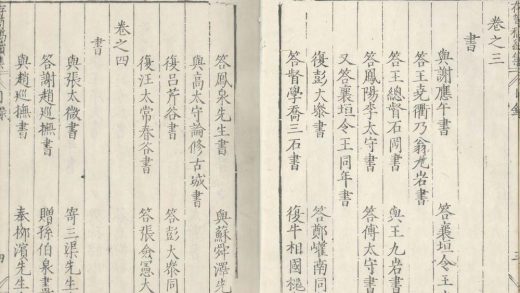 卷之三
書
與謝應午書　答襄垣令王
答王堯衢乃翁九岩書
答王總督石岡書　與王九岩書
答鳳陽李太守書　答傅太守書
又答襄垣令王同年書
復彭大衆書　答鄭南同
答督學喬三石書　復牛相國
三
答鳳泉先生書　與蘇舜澤先
與高太守論修古城書
復呂芹谷書　答彭大衆同
復汪太常春谷書　答張僉憲大
卷之四
書
與張太微書　寄三渠先生
答謝巡撫書　贈孫伯泉書
與趙巡撫書　奉柳濱先生
四